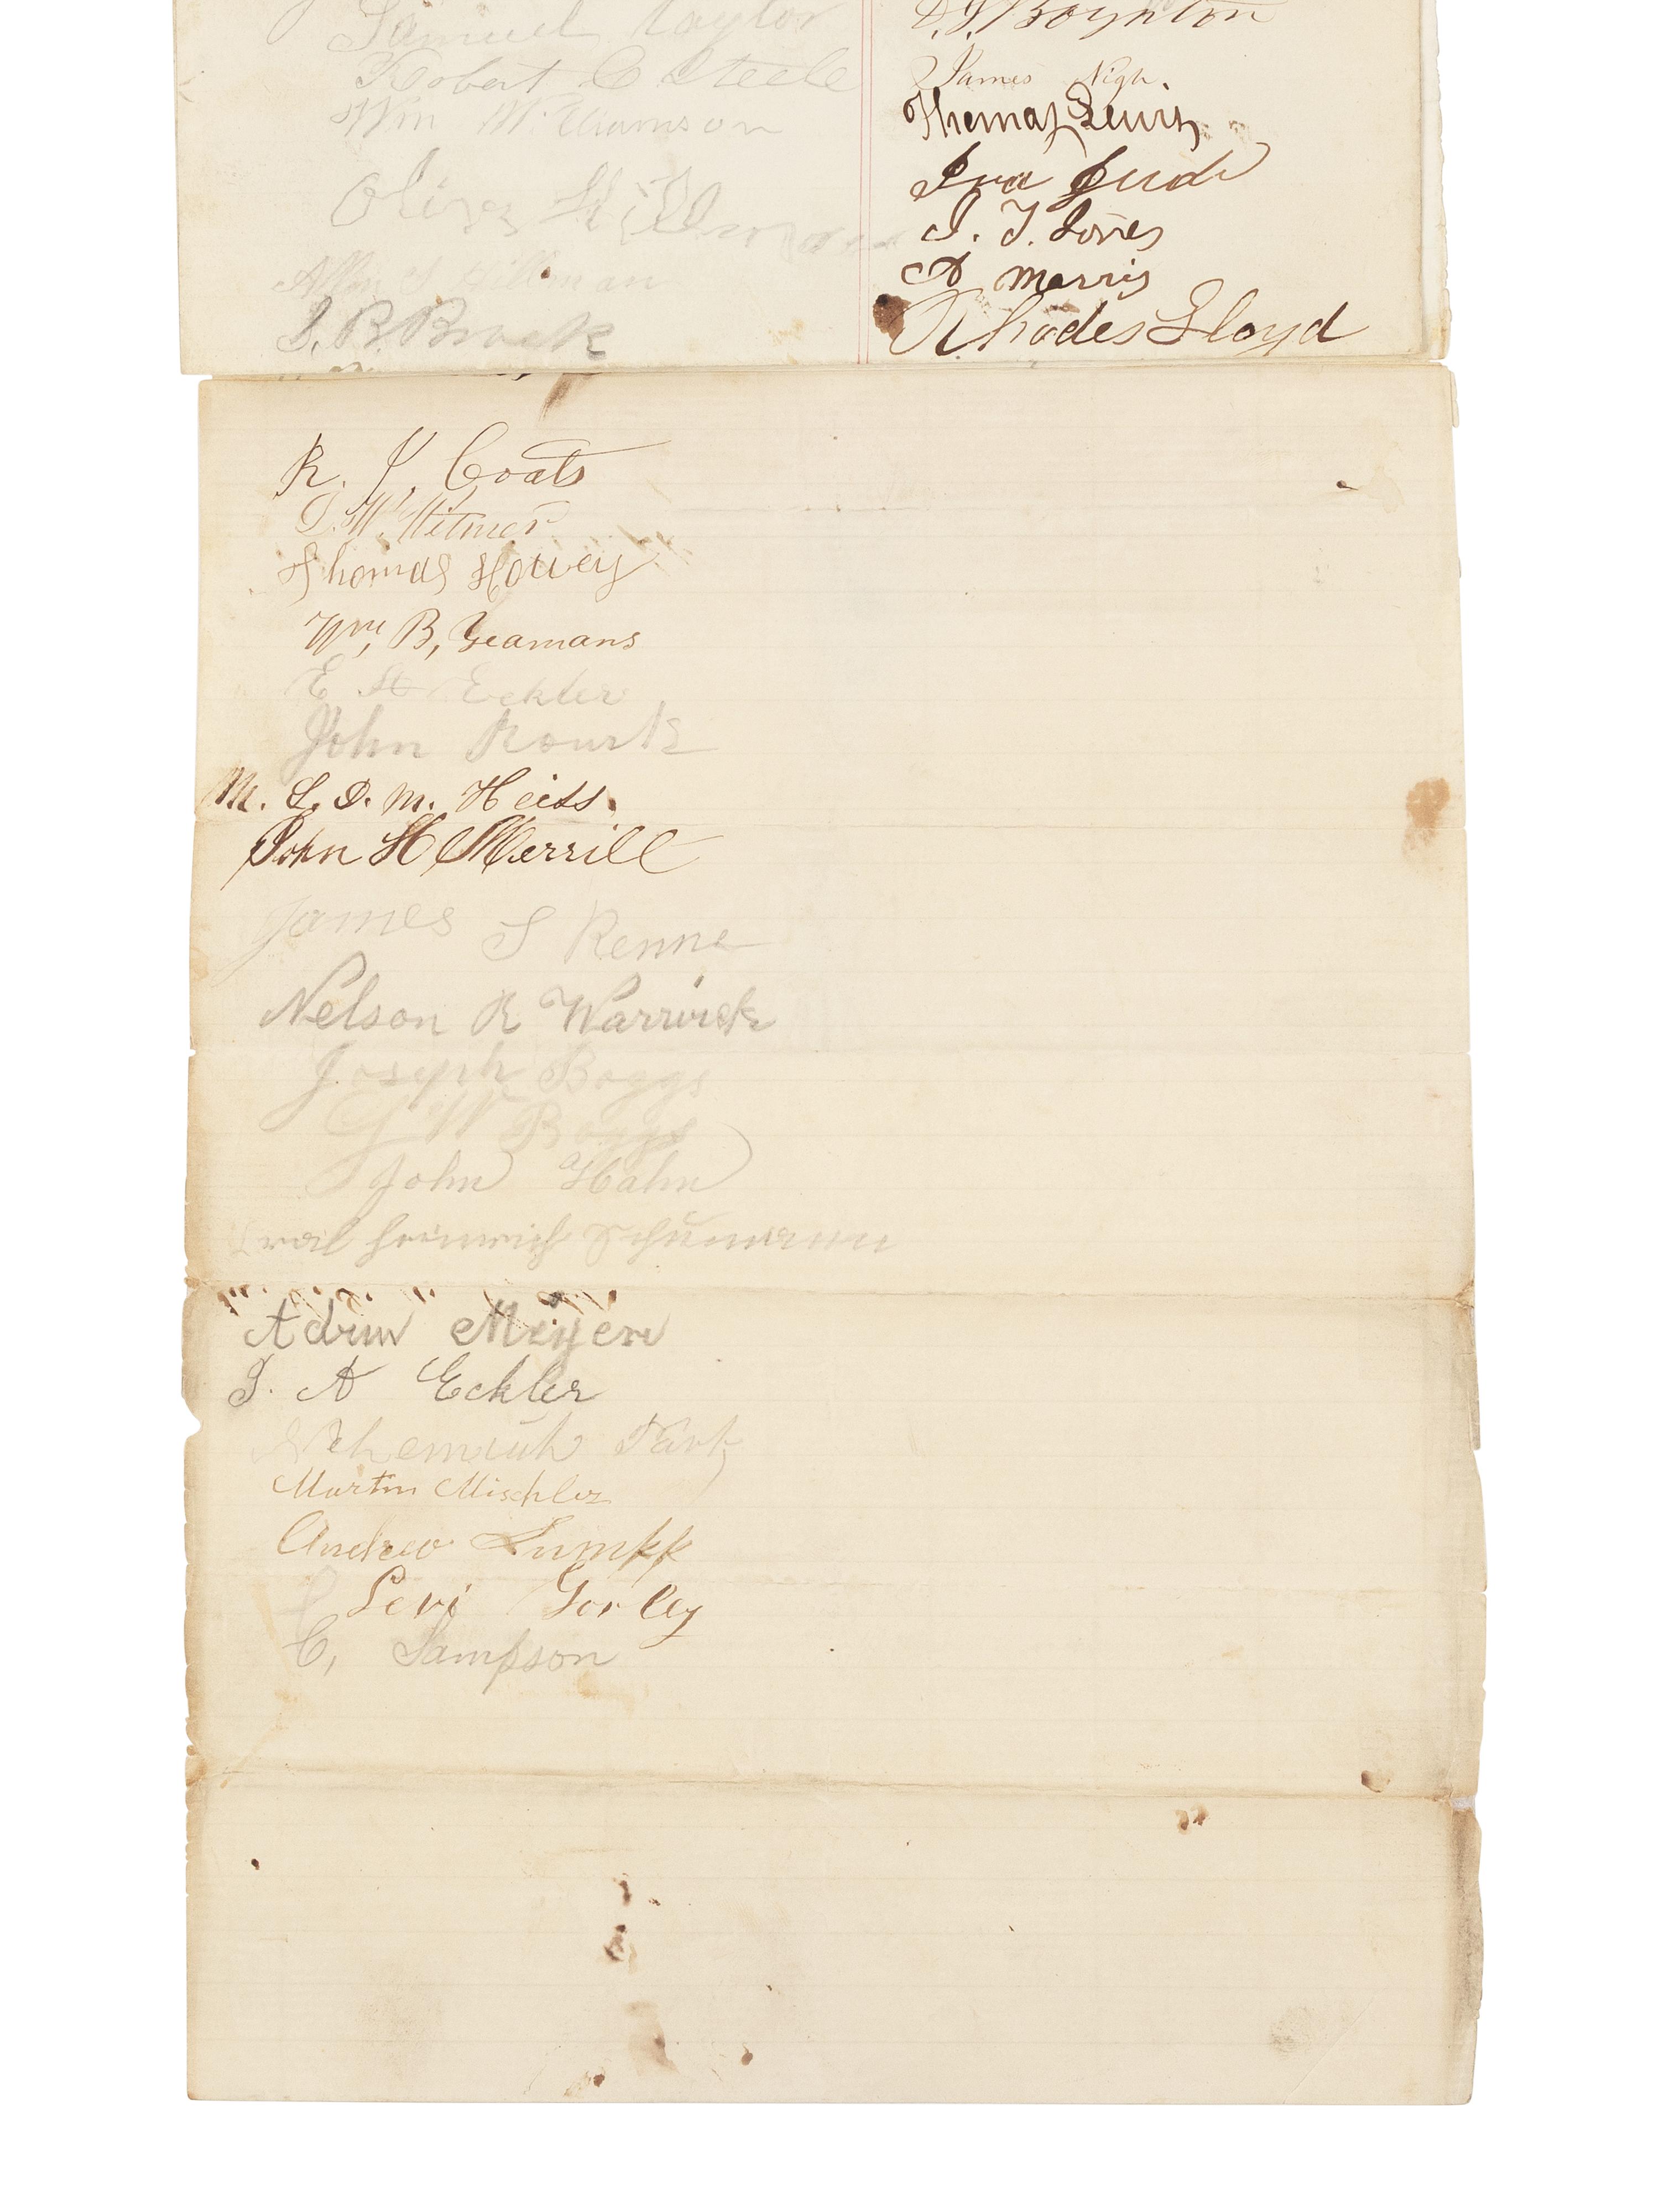 Samuel Taylor
Robert C Steele
Wm Williamson
Oliver
Hillman
S. B. Brock
D. J. Boynton
James Nigh.
Thomas Lewis
Ira Jude
J. T. Jones
A Morris
Rhodes Lloyd
R. J. Coats
D. W. Witmer
Thomas Howey
Wm, B, Yeamans
E H Eckler
John Rourk
M. L. D. M. Heiss.
John H Merrill
James S Renne
Nelson R Warwick
Joseph Boggs
G W Boggs
John Hahn
Heinrich Schumann
Meyer
J. A Eckler
Nehemiah Park
Martin Mischler
Andrew Lumpp
Levi Gorley
C, Sampson